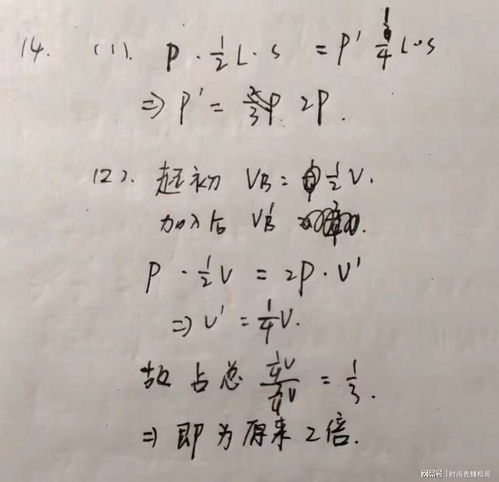 14. (1). P · 1/2 L · S = P' 1/4 L · S
⇒ P' = 2P.
(2). 起初 VB = 1/2 V.
加入后 VB'
P · 1/2 V = 2P · V'
⇒ V' = 1/4 V.
故占总 = 1/3.
⇒ 即为原来2倍.
网易号 | 时尚先锋松哥